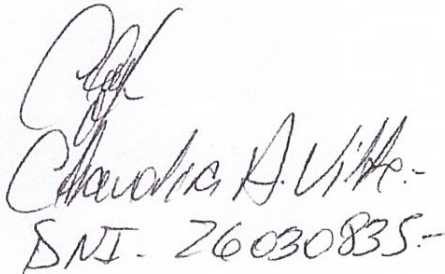 Claudia A. Vitte.-
DNI. 26030835.-